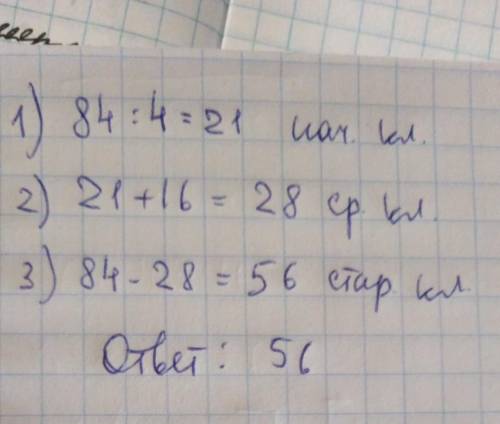 1) 84 : 4 = 21 нач. кл.
2) 21 + 16 = 28 ср. кл.
3) 84 - 28 = 56 стар кл.
Ответ: 56